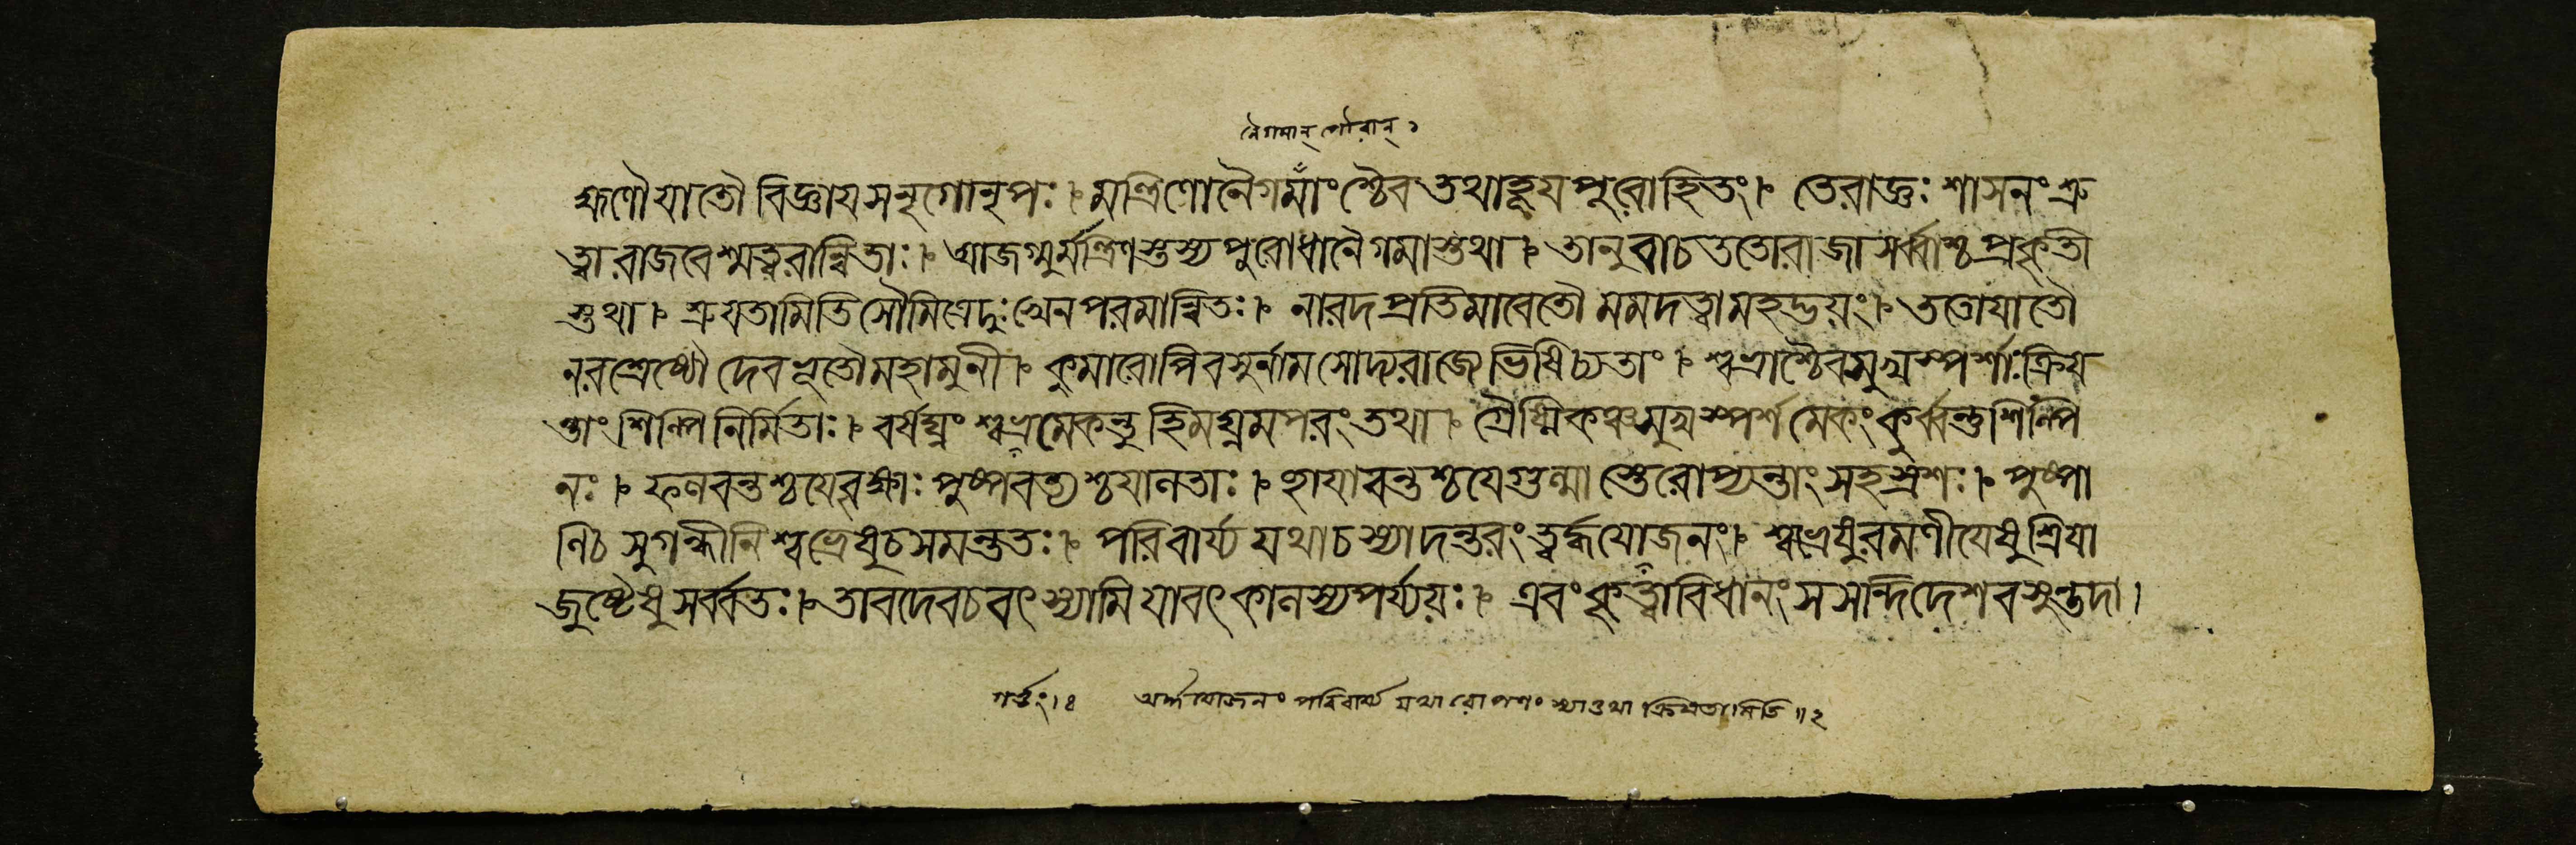 নৈগমান্ পৌরান্ ১
হ্মণৌ যাতৌ বিজ্ঞায স নৃগো নৃপঃ । মন্ত্রিণো নৈগমাঁংশ্চৈব তথাহূয পুরোহিতং । তে রাজ্ঞঃ শাসনং শ্রু
ত্বা রাজবেশ্ম ত্বরান্বিতাঃ । আজগ্মুর্মন্ত্রিণস্তস্য পুরোধা নৈগমাস্তথা । তানুবাচ ততো রাজা সর্ব্বাশ্চ প্রকৃতী
স্তথা । শ্রুযতামিতি সৌমিত্রে দুঃখেন পরমান্বিতঃ । নারদপ্রতিমাবেতৌ মম দত্বা মহদ্ভয়ং । ততো যাতৌ
নরশ্রেষ্ঠৌ দেবভূতৌ মহামুনী । কুমারোপি বসুর্নাম সোদ্য রাজ্যেভিষিচ্যতাং । শ্বভ্রাশ্চৈব সুখস্পর্শাঃ ক্রিয
ন্তাং শিল্পিনির্মিতাঃ । বর্ষঘ্নং শ্বভ্রমেকন্তু হিমঘ্নমপরং তথা । গ্রৈষ্মিকঞ্চ সুখস্পর্শমেকং কুর্ব্বন্তু শিল্পি
নঃ । ফলবন্তশ্চ যে বৃক্ষাঃ পুষ্পবত্যশ্চ যা লতাঃ । ছাযাবন্তশ্চ যে গুল্মাস্তে রোপ্যন্তাং সহস্রশঃ । পুষ্পা
ণি চ সুগন্ধীনি শ্বভ্রেষু চ সমন্ততঃ । পরিবার্য্য যথা চ স্যাদন্তরং ত্বর্দ্ধযোজনং । শ্বভ্রেষু রমণীযেষু শ্রিযা
জুষ্টেষু সর্ব্বতঃ । তাবদেব চ বৎস্যামি যাবৎ কালস্য পর্য্যয়ঃ । এবং কৃত্বা বিধানং স সন্দিদেশ বসুন্তদা ।
গর্ত্তং । ৪ অর্দ্ধযোজনং পরিবার্য্য যথা রোপণং স্যাত্তথা ক্রিযতামিতি ॥ ২